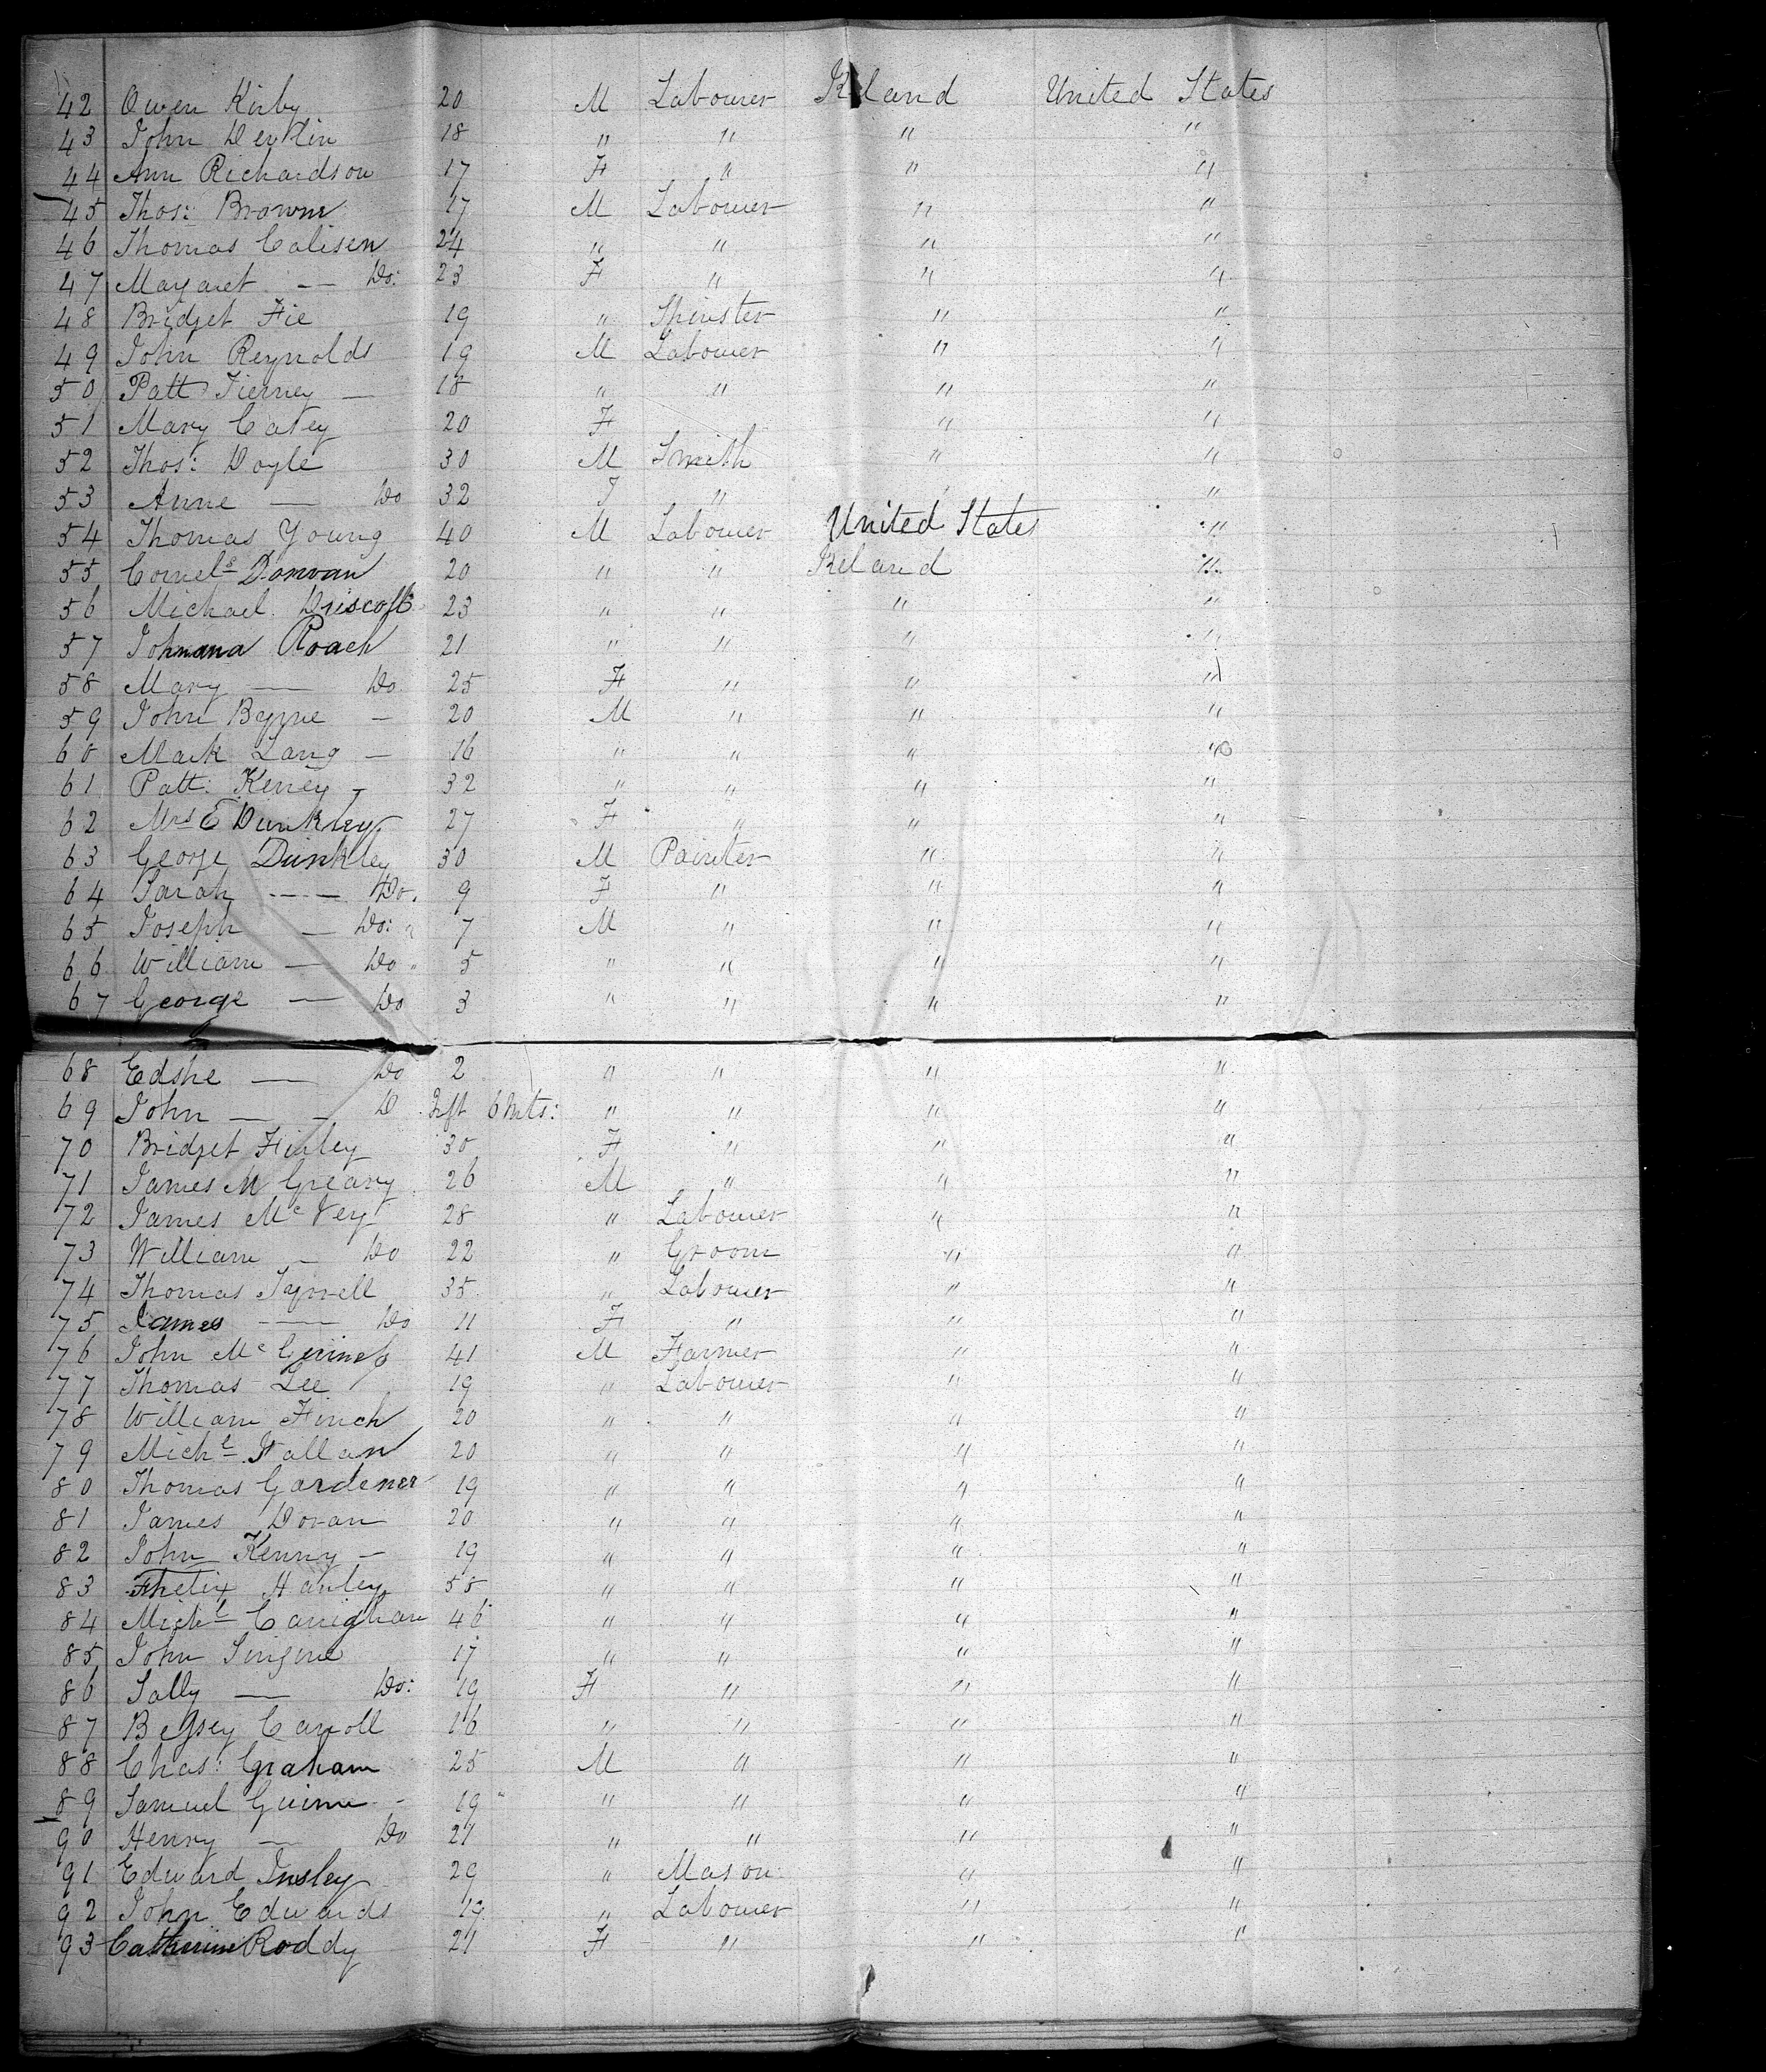 42 Owen Kirby 20 M Labourer Ireland United States
43 John Devlin 18 " " " "
44 Ann Richardson 17 F " " "
45 Thos: Brown 17 M Labourer " "
46 Thomas Calisen 24 " " " "
47 Margaret — Do: 23 F " " "
48 Bridget Fie 19 " Spinster " "
49 John Reynolds 19 M Labourer " "
50 Patt Tierney — 18 " " " "
51 Mary Catey 20 F " "
52 Thos: Doyle 30 M Smith " "
53 Anne — Do 32 F " "
54 Thomas Young 40 M Labourer United States "
55 Cornels Donvan 20 " " Ireland "
56 Michael Driscoll 23 " " " "
57 Johnana Roach 21 " " " "
58 Mary — Do 25 F " " "
59 John Byrne — 20 M " " "
60 Mark Lang — 16 " " " "
61 Patt: Keney — 32 " " " "
62 Mrs E Dunkley 27 F " " "
63 George Dunkley 30 M Painter " "
64 Sarah — Do. 9 F " " "
65 Joseph — Do: 7 M " " "
66 William — Do 5 " " " "
67 George — Do 3 " " " "
68 Edshe — Do 2 " " " "
69 John — D Inft 6 Mts: " " " "
70 Bridget Finley 30 F " " "
71 James M Greary 26 M " " "
72 James Mc Vey 28 " Labourer " "
73 William — Do 22 " Groom " "
74 Thomas Tyrrell 35 " Labourer " "
75 James — Do 11 F " " "
76 John Mc 41 M Farmer " "
77 Thomas Lee 19 " Labourer " "
78 William Finch 20 " " " "
79 Michl Fallan 20 " " " "
80 Thomas Gardener 19 " " " "
81 James Doran 20 " " " "
82 John Kenny — 19 " " " "
83 Fhelix Hanley 58 " " " "
84 Michl Carrighan 46 " " " "
85 John 17 " " " "
86 Sally — Do: 19 F " " "
87 Betsey Carroll 16 " " " "
88 Chas: Graham 25 M " " "
89 Samuel 19 " " " "
90 Henry — Do 21 " " " "
91 Edward Insley 29 " Mason " "
92 John Edwards 19 " Labourer " "
93 Catherine Roddy 21 F " " "